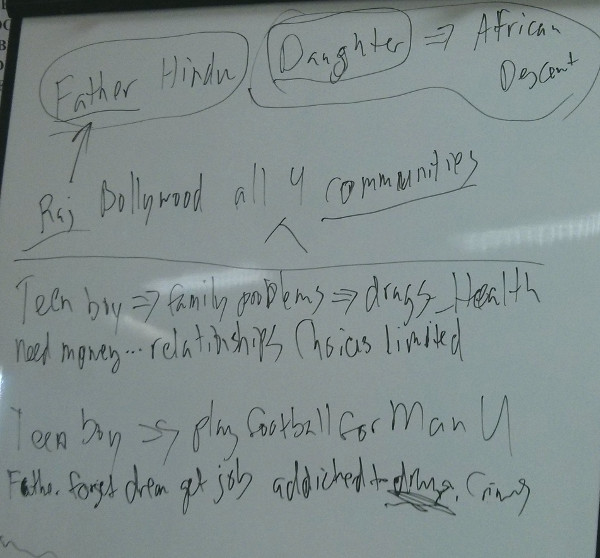 Father Hindu
Daughter => African Descent
Raj Bollywood all 4 communities
Teen boy => family problems => drugs Health
need money... relationships Choices limited
Teen boy => play football for Man U
Father forget dream get job addicted to drugs. Crimes